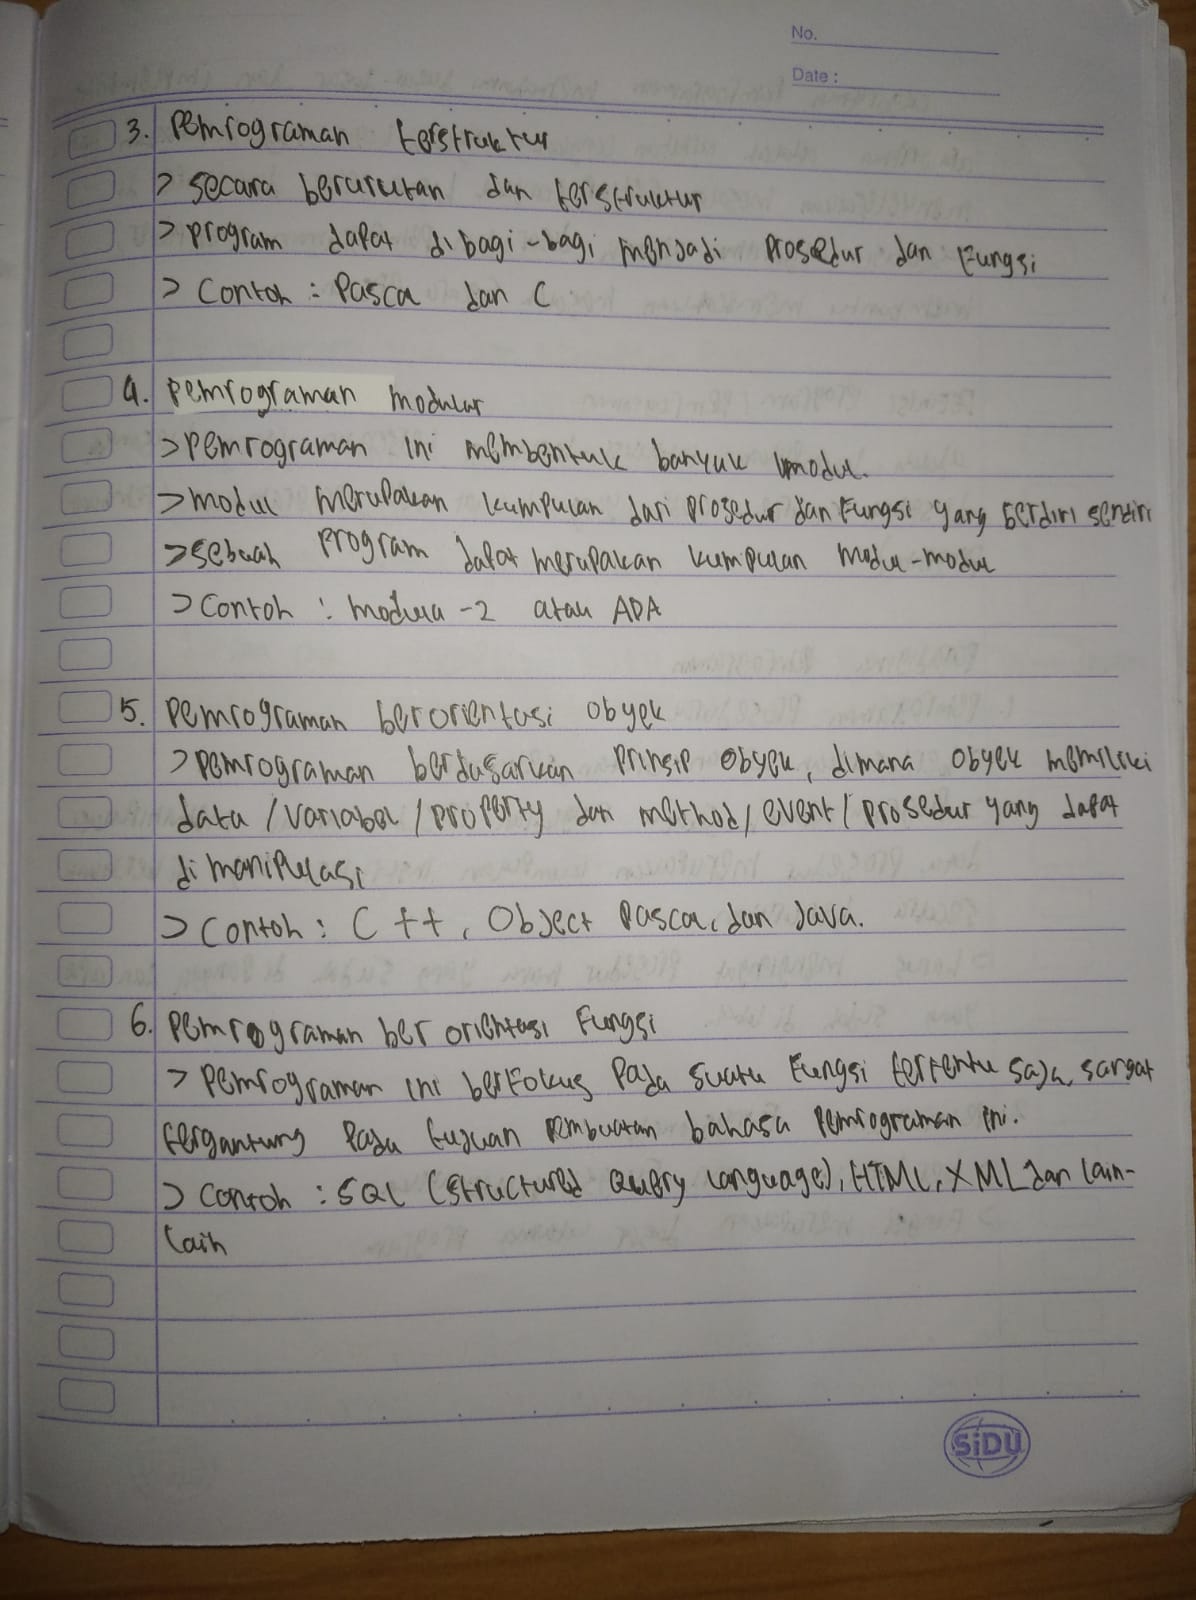 No.
Date :
3. Pemrograman terstruktur
> secara berurutan dan terstruktur
> program dapat dibagi-bagi menjadi prosedur dan Fungsi
> Contoh : Pascal dan C
4. Pemrograman modular
> Pemrograman ini membentuk banyak modul.
> modul merupakan kumpulan dari prosedur dan Fungsi yang berdiri sendiri
> sebuah program dapat merupakan kumpulan modul-modul
> Contoh : modula -2 atau ADA
5. Pemrograman berorientasi obyek
> Pemrograman berdasarkan Prinsip obyek, dimana obyek memiliki
data / variabel / property dan method / event / prosedur yang dapat
di manipulasi
> Contoh : C ++, Object Pascal, dan Java.
6. Pemrograman ber orientasi Fungsi
> Pemrograman ini berFokus Pada suatu Fungsi tertentu saja, sangat
tergantung Pada tujuan Pembuatan bahasa Pemrograman ini.
> Contoh : SQL (Structured Query Language), HTML, XML dan lain-
lain
SiDU